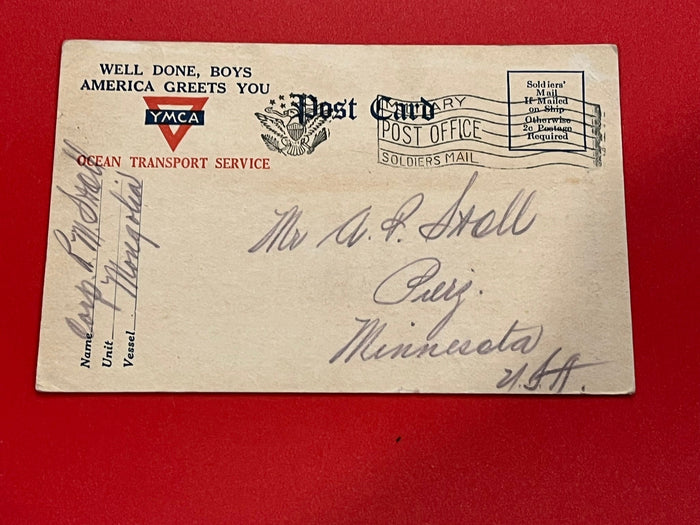 WELL DONE, BOYS
AMERICA GREETS YOU
YMCA
OCEAN TRANSPORT SERVICE
Post Card
MILITARY
POST OFFICE
SOLDIERS MAIL
Soldiers'
Mail
If Mailed
on Ship
Otherwise
2c Postage
Required
Name Corp. R M Stoll
Unit
Vessel Mongolia
Mr A. P. Stoll
Pierz.
Minnesota
U.S.A.